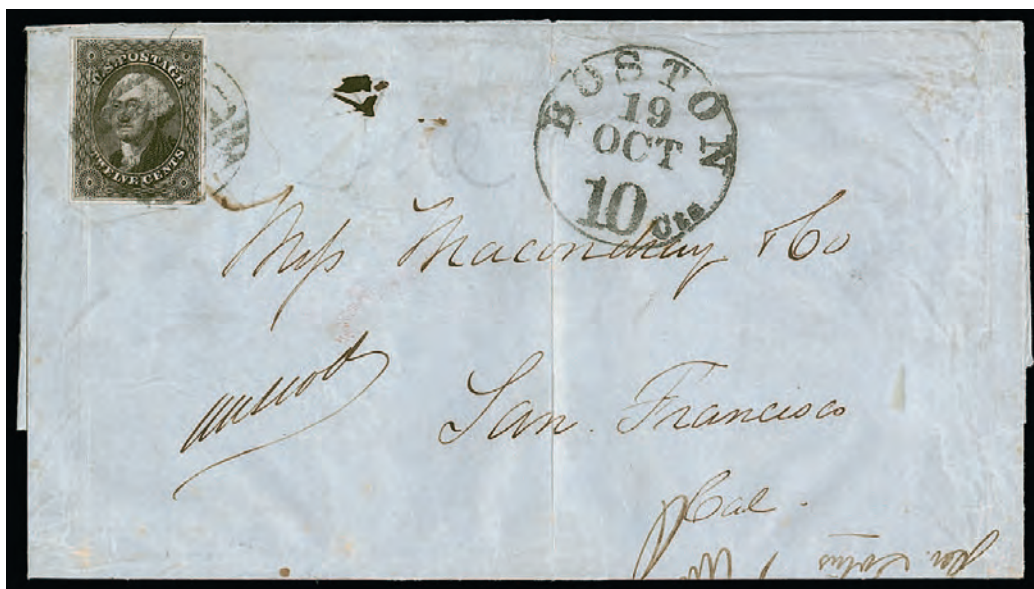 U.S. POSTAGE
TWELVE CENTS
BOSTON
19
OCT
10 cts
Messs Macondray & Co
San. Francisco
Cal.